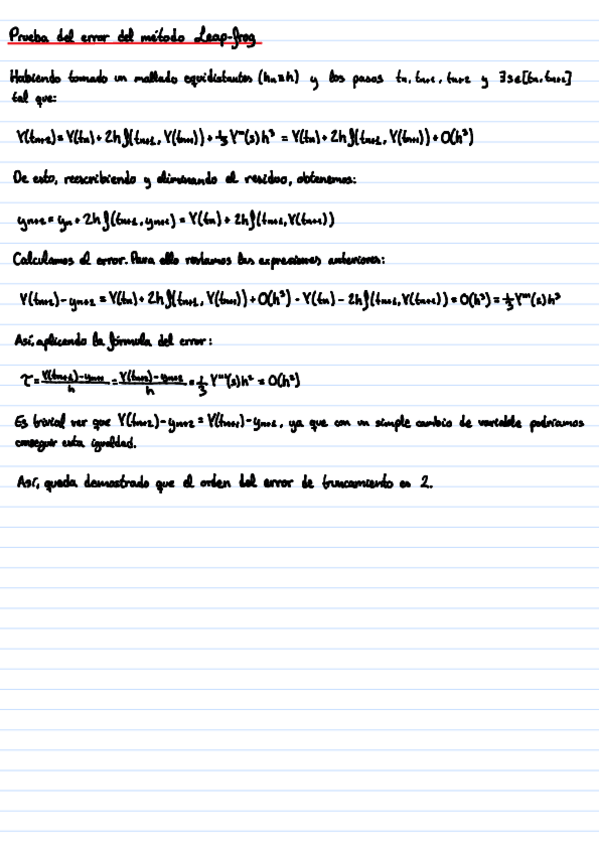 Prueba del error del método Leap-frog
Habiendo tomado un mallado equidistantes (hₙ=h) y los pasos tₙ, tₙ₊₁, tₙ₊₂ y ∃s∈[tₙ, tₙ₊₂]
tal que:
Y(tₙ₊₂) = Y(tₙ) + 2h f(tₙ₊₁, Y(tₙ₊₁)) + ⅓ Y'''(s)h³ = Y(tₙ) + 2h f(tₙ₊₁, Y(tₙ₊₁)) + O(h³)
De esto, reescribiendo y eliminando el residuo, obtenemos:
yₙ₊₂ = yₙ + 2h f(tₙ₊₁, yₙ₊₁) = Y(tₙ) + 2h f(tₙ₊₁, Y(tₙ₊₁))
Calculamos el error. Para ello restamos las expresiones anteriores:
Y(tₙ₊₂) - yₙ₊₂ = Y(tₙ) + 2h f(tₙ₊₁, Y(tₙ₊₁)) + O(h³) - Y(tₙ) - 2h f(tₙ₊₁, Y(tₙ₊₁)) = O(h³) = ⅓ Y'''(s)h³
Así, aplicando la fórmula del error:
τ = (Y(tₙ₊₁) - yₙ₊₁)/h = (Y(tₙ₊₂) - yₙ₊₂)/h = ⅓ Y'''(s)h² = O(h²)
Es trivial ver que Y(tₙ₊₂) - yₙ₊₂ = Y(tₙ₊₁) - yₙ₊₁, ya que con un simple cambio de variable podríamos
conseguir esta igualdad.
Así, queda demostrado que el orden del error de truncamiento es 2.